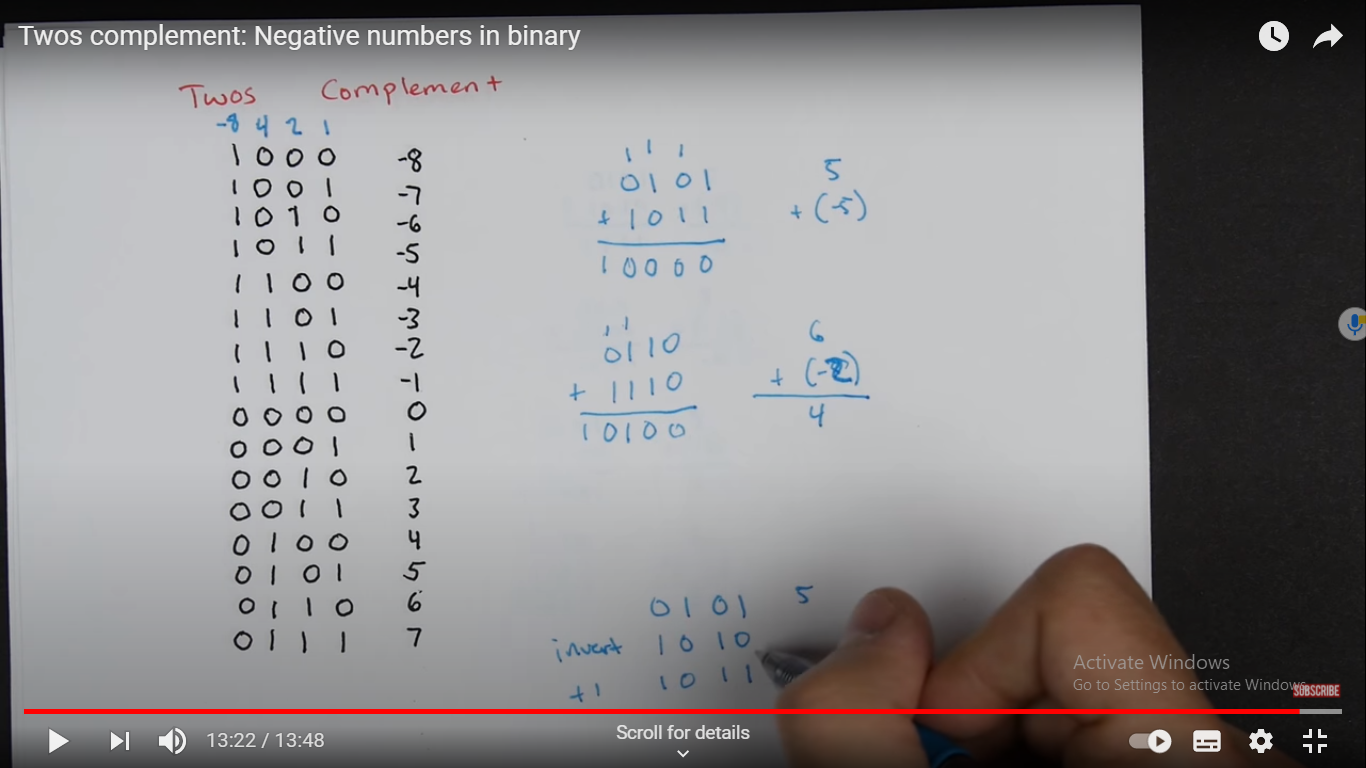 Twos complement: Negative numbers in binary
Twos Complement
-8 4 2 1
1 0 0 0 -8
1 0 0 1 -7
1 0 1 0 -6
1 0 1 1 -5
1 1 0 0 -4
1 1 0 1 -3
1 1 1 0 -2
1 1 1 1 -1
0 0 0 0 0
0 0 0 1 1
0 0 1 0 2
0 0 1 1 3
0 1 0 0 4
0 1 0 1 5
0 1 1 0 6
0 1 1 1 7
1 1 1
0101 5
+ 1011 + (-5)
10000
1 1
0110 6
+ 1110 + (-2)
10100 4
0101 5
invert 1010
+1 1011
Activate Windows
Go to Settings to activate Windows.
SUBSCRIBE
13:22 / 13:48
Scroll for details